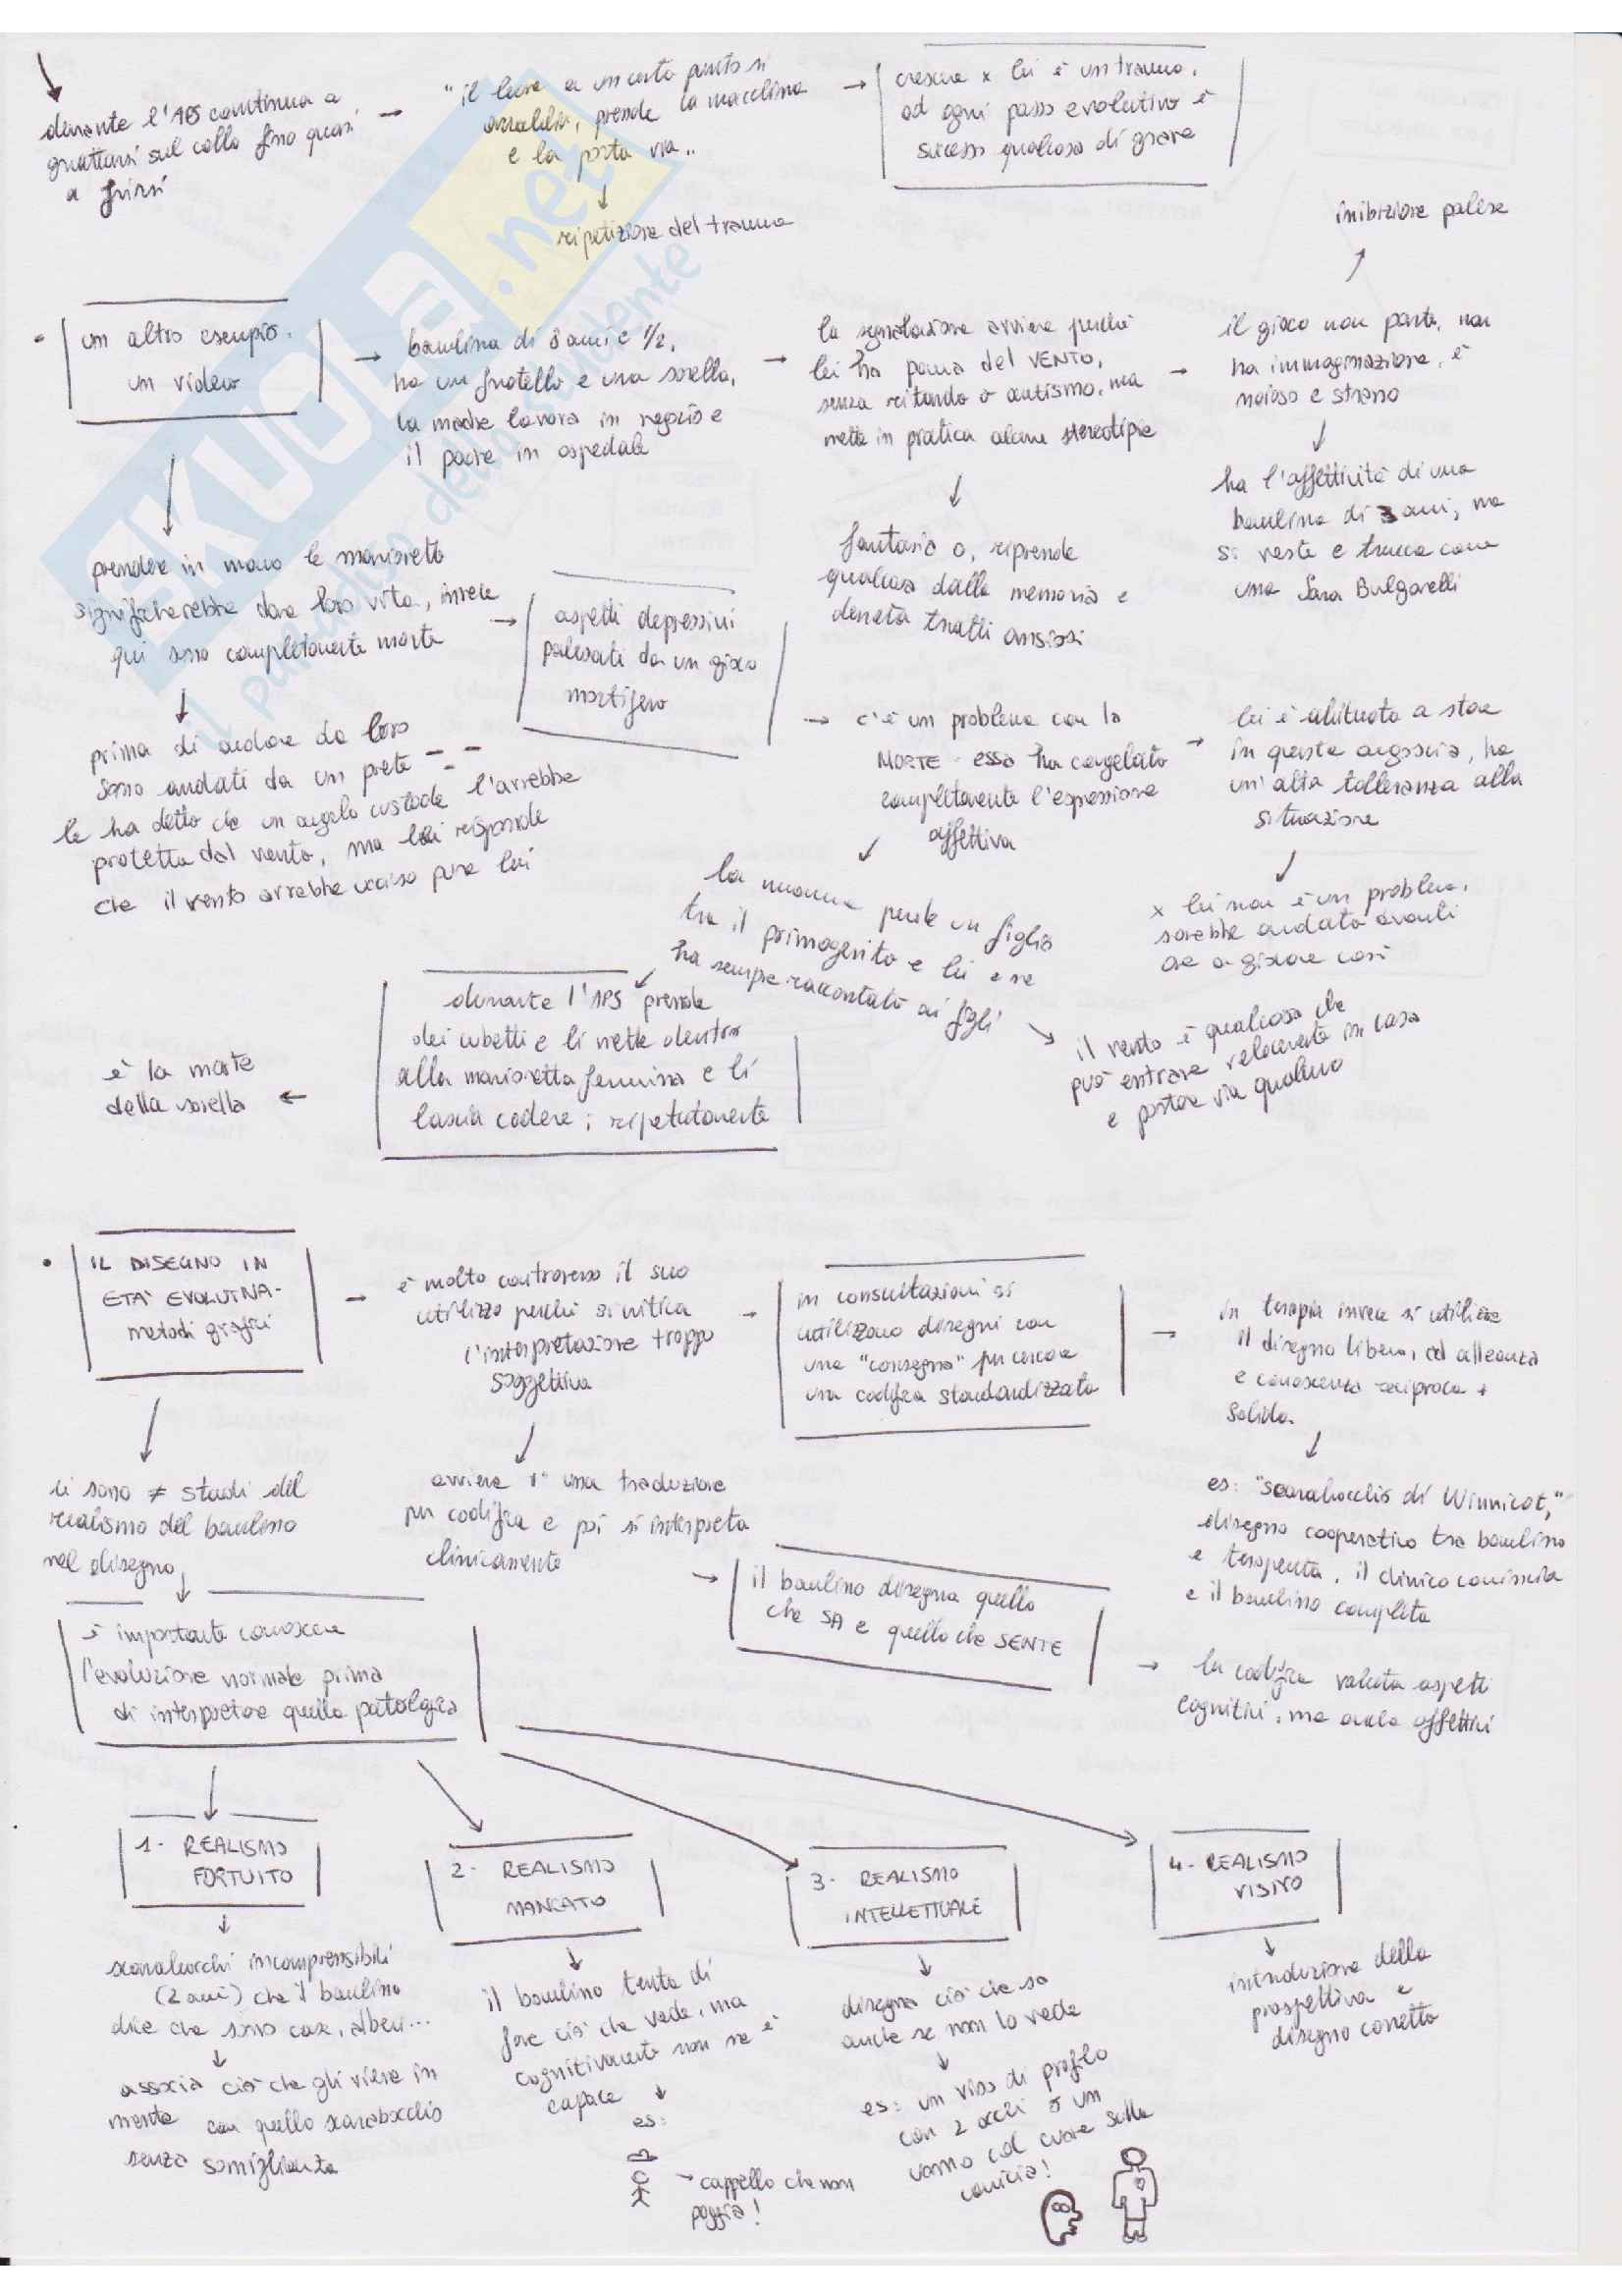 durante l'APS continua a
grattarsi sul collo fino quasi
a ferirsi
"il leone a un certo punto si
arrabbia, prende la macchina
e la porta via..
ripetizione del trauma
crescere x lui è un trauma,
ad ogni passo evolutivo è
successo qualcosa di grave
inibizione palese
un altro esempio.
un video
bambina di 8 anni e 1/2,
ha un fratello e una sorella,
la madre lavora in negozio e
il padre in ospedale
la segnalazione avviene perché
lei ha paura del VENTO,
senza ritardo o autismo, ma
mette in pratica alcune stereotipie
il gioco non parte, non
ha immaginazione, è
noioso e strano
ha l'affettività di una
bambina di 3 anni, ma
si veste e trucca come
una Sara Bulgarelli
fantasia 0, riprende
qualcosa dalla memoria e
denota tratti ansiosi
prendere in mano le marionette
significherebbe dare loro vita, invece
qui sono completamente morte
aspetti depressivi
palesati da un gioco
mortifero
prima di andare da loro
sono andati da un prete
le ha detto che un angelo custode l'avrebbe
protetta dal vento, ma lei risponde
che il vento avrebbe ucciso pure lui
c'è un problema con la
MORTE - essa ha congelato
completamente l'espressione
affettiva
lei è abituata a stare
in questa angoscia, ha
un'alta tolleranza alla
situazione
x lei non è un problema,
sarebbe andata avanti
ore a giocare così
la mamma perde un figlio
tra il primogenito e lei e ne
ha sempre raccontato ai figli
il vento è qualcosa che
può entrare velocemente in casa
e portare via qualcuno
durante l'APS prende
dei cubetti e li mette dentro
alla marionetta femmina e li
lascia cadere; ripetutamente
è la morte
della sorella
IL DISEGNO IN
ETA' EVOLUTIVA-
metodi grafici
è molto controverso il suo
utilizzo perché si critica
l'interpretazione troppo
soggettiva
in consultazioni si
utilizzano disegni con
una "consegna" per cercare
una codifica standardizzata
in terapia invece si utilizza
il disegno libero, ad alleanza
e conoscenza reciproca +
solida.
es: "scarabocchio di Winnicot,"
disegno cooperativo tra bambino
e terapeuta, il clinico comincia
e il bambino completa
avviene 1° una traduzione
per codifica e poi si interpreta
clinicamente
il bambino disegna quello
che SA e quello che SENTE
la codifica valuta aspetti
cognitivi, ma anche affettivi
ci sono ≠ studi del
realismo del bambino
nel disegno
è importante conoscere
l'evoluzione normale prima
di interpretare quella patologica
1- REALISMO
FORTUITO
scarabocchi incomprensibili
(2 anni) che il bambino
dice che sono case, alberi...
associa ciò che gli viene in
mente con quello scarabocchio
senza somiglianza
2- REALISMO
MANCATO
il bambino tenta di
fare ciò che vede, ma
cognitivamente non ne è
capace
es:
cappello che non
poggia!
3- REALISMO
INTELLETTUALE
disegna ciò che sa
anche se non lo vede
es: un viso di profilo
con 2 occhi o un
uomo col cuore sulla
camicia!
4- REALISMO
VISIVO
introduzione della
prospettiva e
disegno corretto
SKUOLA.net
il paradiso dello studente